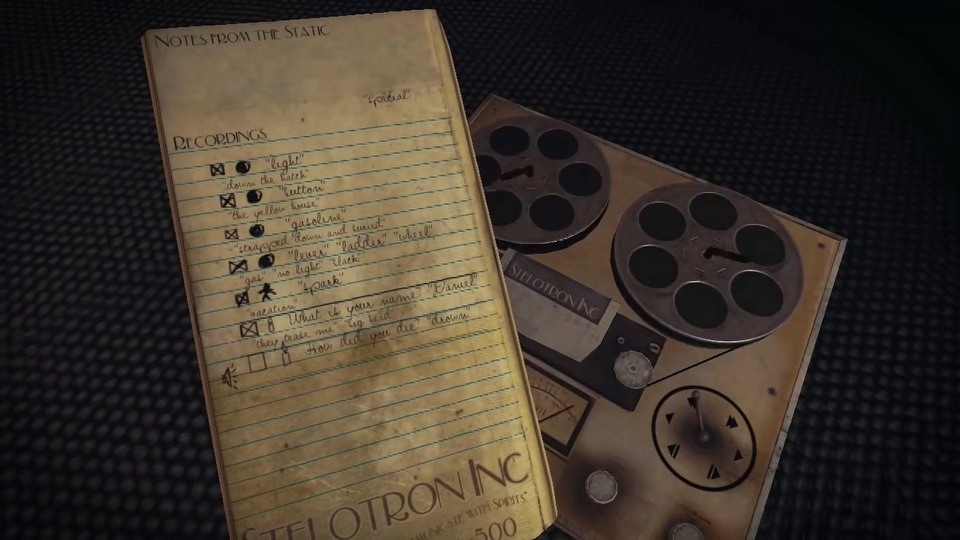 NOTES FROM THE STATIC
"spitial"
RECORDINGS
"light"
"down the hatch"
"button"
"the yellow house"
"gasoline"
"strapped down and swind"
"lever" "ladder" "wheel"
"gas" "no light" "black"
"spark"
"vacation"
What is your name? "Daniel"
"they tease me" "big head"
How did you die? "drown"
STELOTRON INC
WITH SPIRITS"
500
STELOTRON INC